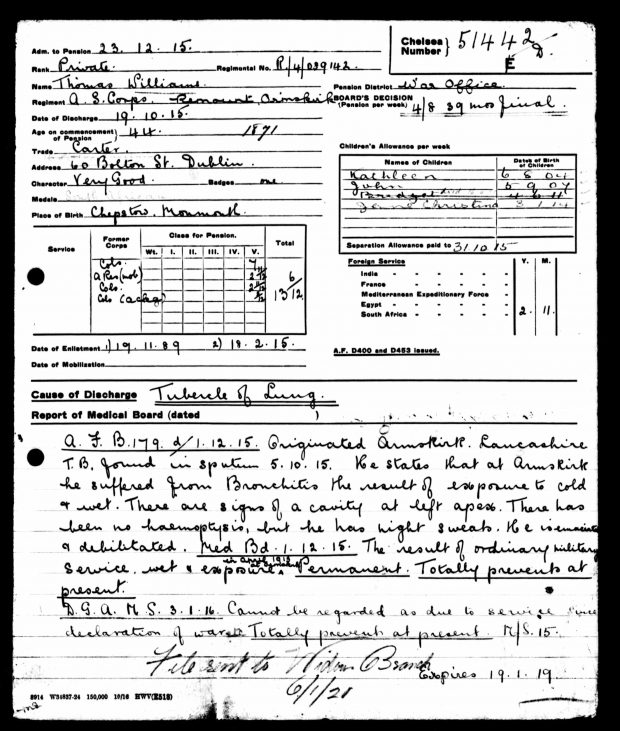 Adm. to Pension 23. 12. 15.
Chelsea Number } 51442 D.
E
Rank Private. Regimental No. R/4/089142.
Name Thomas Williams.
Pension District War Office.
Regiment A. S. Corps. Remount Ormskirk
BOARD'S DECISION (Pension per week) } 4/8 39 mos final.
Date of Discharge 19. 10. 15.
Age on commencement of Pension } 44. 1871
Trade Carter.
Address 60 Bolton St. Dublin.
Character Very Good. Badges one
Medals
Place of Birth Chepstow, Monmouth.
Children's Allowance per week
Names of Children Dates of Birth of Children
Kathleen 6 8 04
John 5 9 07
Bridget 4 6 11
Christina 3 1 14
Separation Allowance paid to 31.10.15
Service Former Corps Class for Pension. Total
Wt. I. II. III. IV. V.
Cols.
A Res (mob)
Cols.
Cols
13 6/12
Foreign Service Y. M.
India - - - -
France - - - -
Mediterranean Expeditionary Force -
Egypt - - - -
South Africa - - - - 2. 11.
Date of Enlistment 1) 19. 11. 89 2) 18. 2. 15.
Date of Mobilization
A.F. D400 and D453 issued.
Cause of Discharge Tubercle of Lung.
Report of Medical Board (dated )
A. F. B. 179. d/ 1. 12. 15. Originated Ormskirk. Lancashire
T.B. found in sputum 5. 10. 15. He states that at Ormskirk
he suffered from Bronchitis the result of exposure to cold
& wet. There are signs of a cavity at left apex. There has
been no haemoptysis, but he has night sweats. He is emaciated
& debilitated. Med Bd. 1. 12. 15. The result of ordinary military
service. wet & exposure. Permanent. Totally prevents at
present.
D. G. A. M. S. 3. 1. 16. Cannot be regarded as due to service since
declaration of war. Totally prevents at present. M/S. 15.
File sent to Widows Branch
6/1/21
Expires 19. 1. 19.
8914 W34837-24 150,000 10/16 HWV(E516)